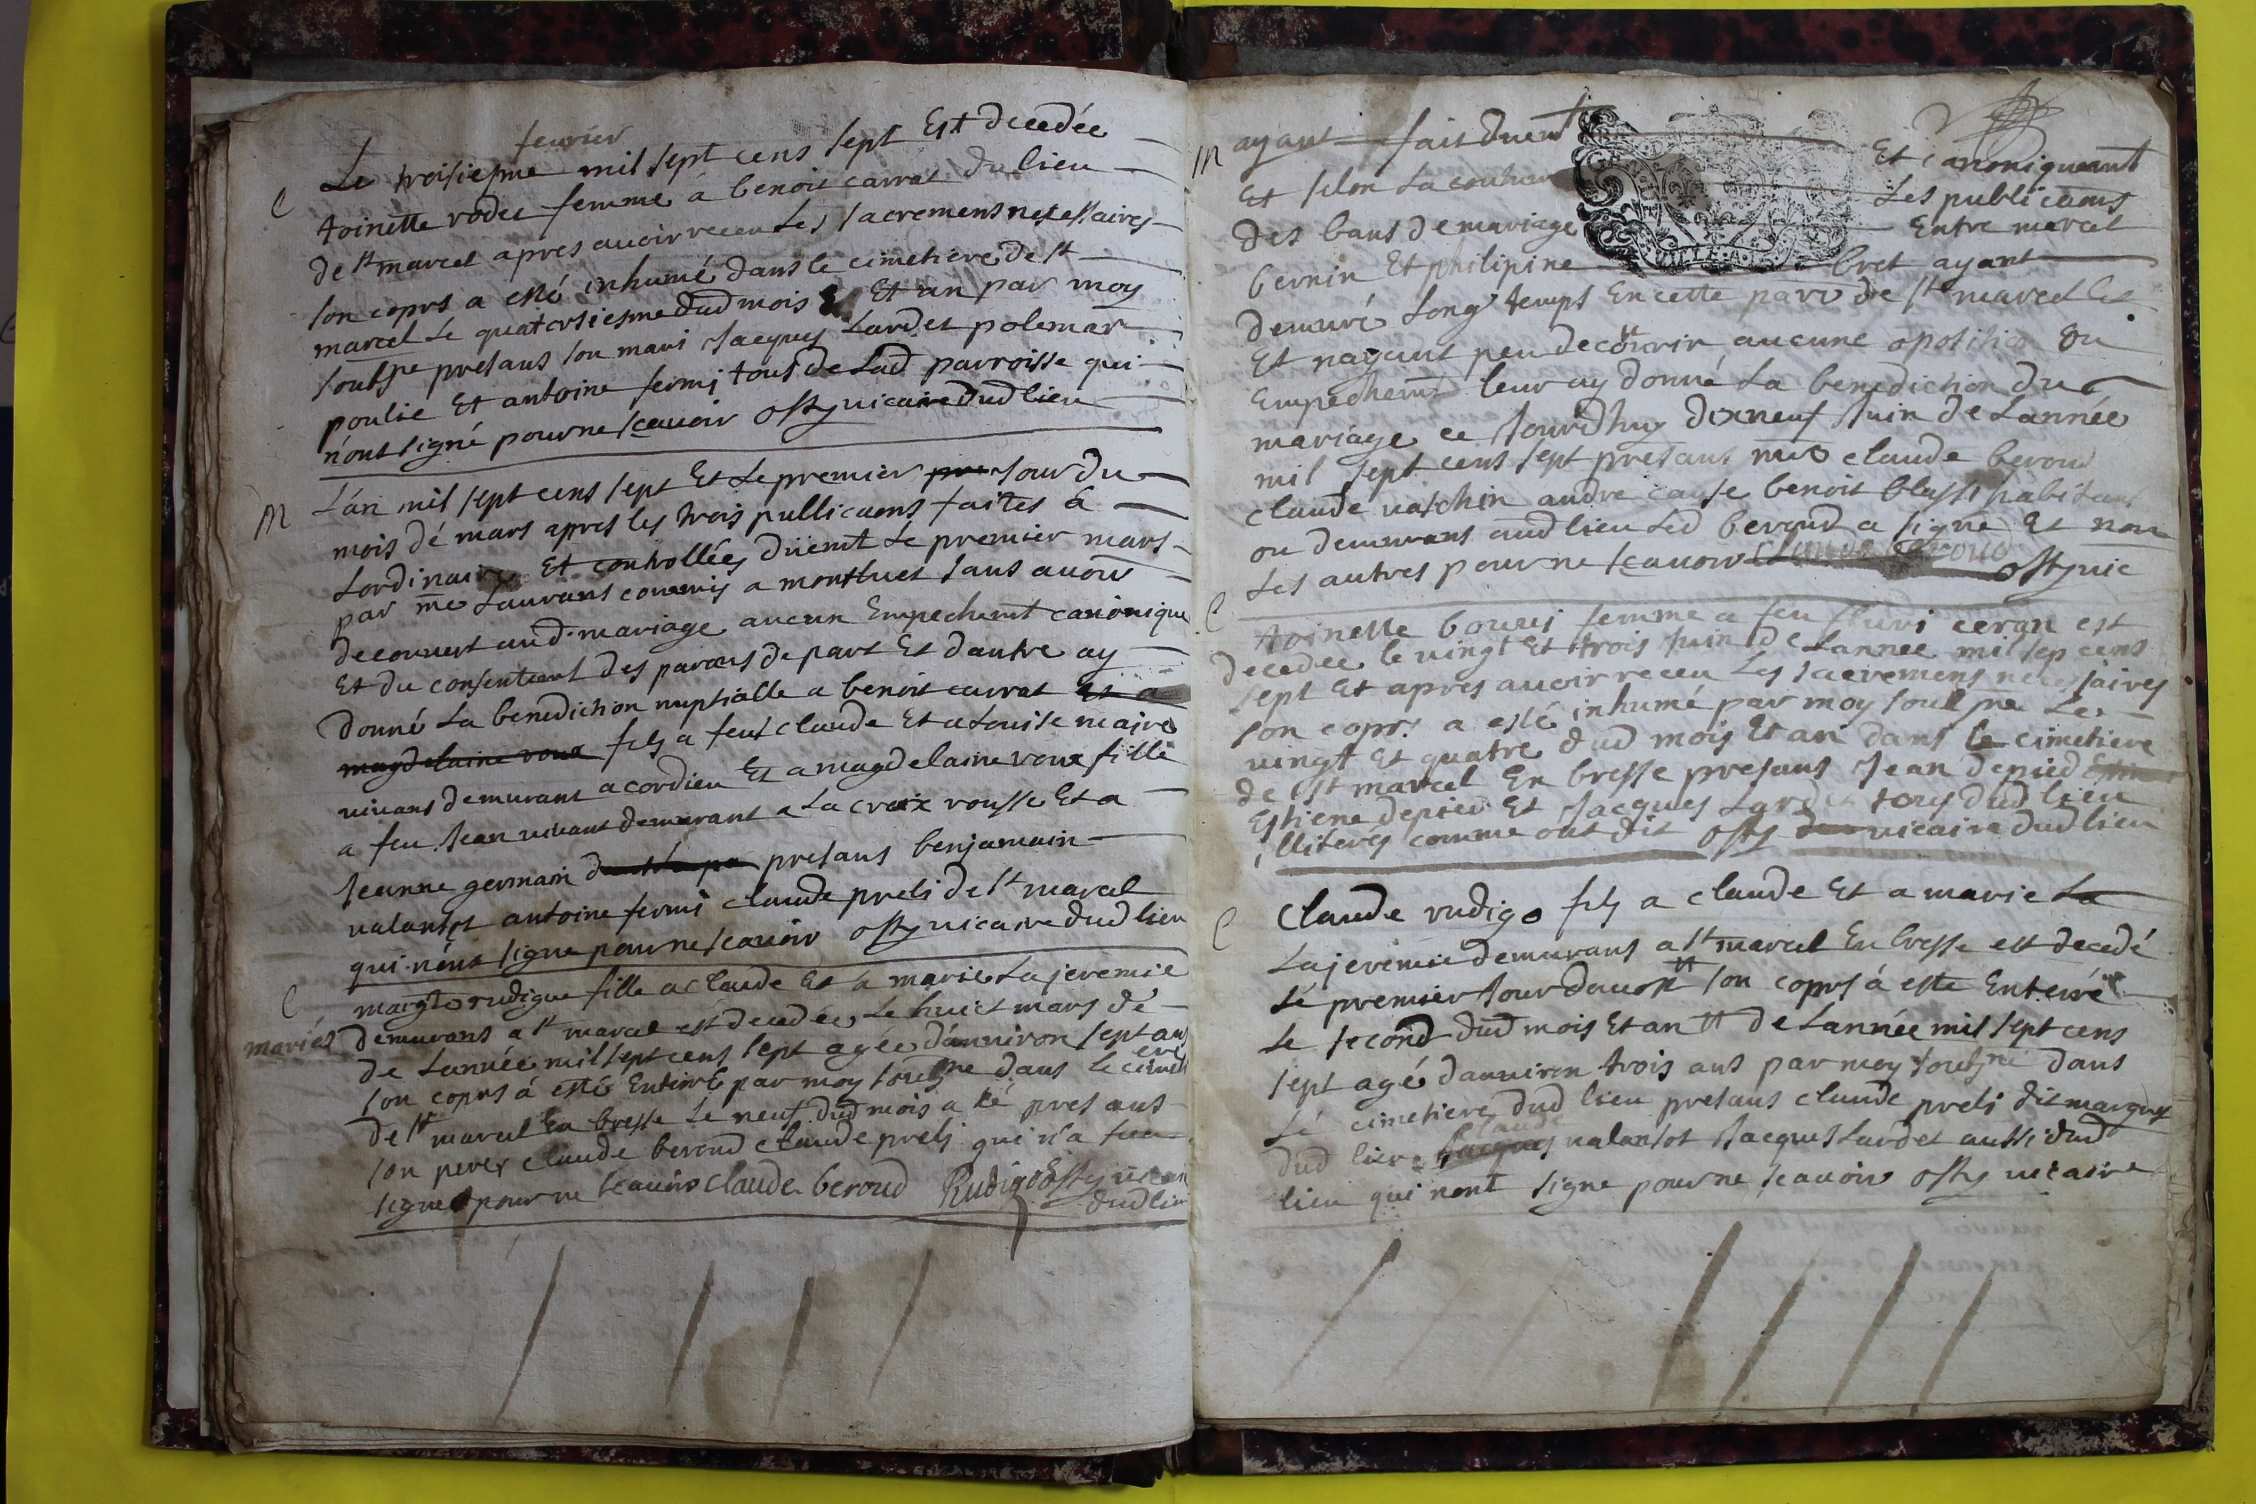 fevrier
Le troisiesme mil sept cens sept Est decedée
C
toinette rodet femme à benoit carrat du lieu
de st marcel apres avoir receu Les sacremens necessaires
son coprs a esté inhumé dans le cimetiere de st
marcel Le quatorsiesme dud mois Et an par moy
soubsne presans son mari Jacques Lardet polemar
poulie Et antoine fermi tous de Lad parroisse qui
n'ont signé pour ne scavoir osty vicaire dud lieu
M
L'an mil sept cens sept Et Le premier jour du
mois de mars apres les trois publicaons faites à
Lordinaire Et controllées düemt Le premier mars
par me Laurans commis a montluel sans avoir
decouvert aud mariage aucun Empechemt canonique
Et du consentemt des parans de part Et dautre ay
donné La benediction nuptialle a benoit carrat Et a
magdelaine roux fils a feut claude Et a Louise maire
vivans demurant a cordieu Et a magdelaine roux fille
a feu Jean vivant demurant a La croix rousse Et a
Jeanne germain presans benjamain
valansot antoine fermi claude preli de st marcel
qui n'ont signe pour ne scavoir osty vicaire dud lieu
C
margte rudigue fille a claude Et a marie Lajeremie
mariés
demurans a st marcel est decedée Le huict mars de
de Lannée mil sept cens sept agée danviron sept ans
son coprs à esté Enterré par moy soubsne dans le cimetiere
de st marcel En bresse Le neuf dud mois a né presans
son perer claude beroud claude preli qui n'a
signe pour ne scavoir claude beroud Rudigo Osty vicaire
dud lieu
M
ayant fait duemt Et canoniquemt
Et selon La coutume Les publicaons
des bans de mariage Entre marcel
bernin Et philipine bret ayant
demuré Long temps En cette parr de st marcel Et
Et nayant peu decouvrir aucune oposition ou
Empechemt leur ay donné La benediction du
mariage ce Jourdhuy dixneuf Juin de Lannée
mil sept cens sept presans me claude beroud
claude vatchin andre cause benoit blassi habitans
ou demurans aud lieu Led beroud a signé Et non
Les autres pour ne scavoir claude beroud
osty vic
C
toinette bouvi femme a feu fluri ceran est
decedée le vingt Et trois Juin de Lannee mil sep cens
sept Et apres avoir receu Les sacremens necessaires
son coprs a esté inhumé par moy soubsne Le
vingt Et quatre dud mois Et an dans le cimetiere
de st marcel En bresse presans Jean depied
Estiene depied Et Jacques Lardet tous dud lieu
illiterés comme ont dit osty vicaire dud lieu
C
Claude rudigo fils a claude Et a marie La
Lajeremie demurans a st marcel En bresse est decedé
Le premier Jour daoust son coprs à esté Enterré
Le second dud mois Et an de Lannée mil sept cens
sept agé danviron trois ans par moy soubsne dans
Le cimetiere dud lieu presans claude preli dit marquis
claude
dud lieu Jacques valansot Jacques Lardet aussi dud
lieu qui nont signe pour ne scavoir osty vicaire